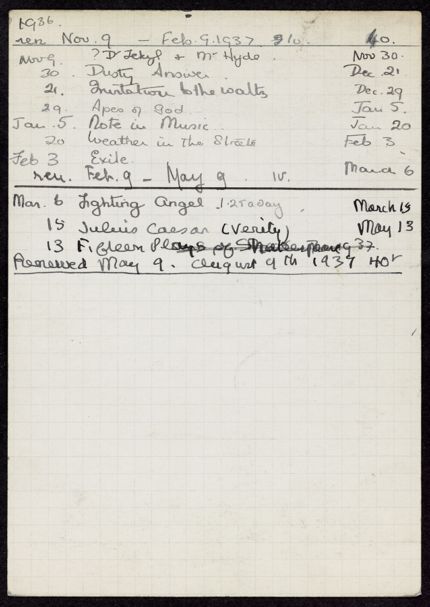 1936.
ren Nov. 9 — Feb. 9. 1937. 40.
Nov 9. ? Dr Jekyl + Mr Hyde. Nov 30.
30. Dusty Answer. Dec. 21
21. Invitation to the waltz Dec. 29
29. Apes of God. Jan 5.
Jan. 5. Note in Music Jan 20
20 Weather in the Streets Feb 3
Feb 3 Exile. March 6
ren. Feb. 9 — May 9.
Mar. 6 Fighting Angel. March 15
15 Julius Caesar (Verity) May 13
13 Fifteen Plays of Shakespeare 37.
Renewed May 9. August 9th 1937